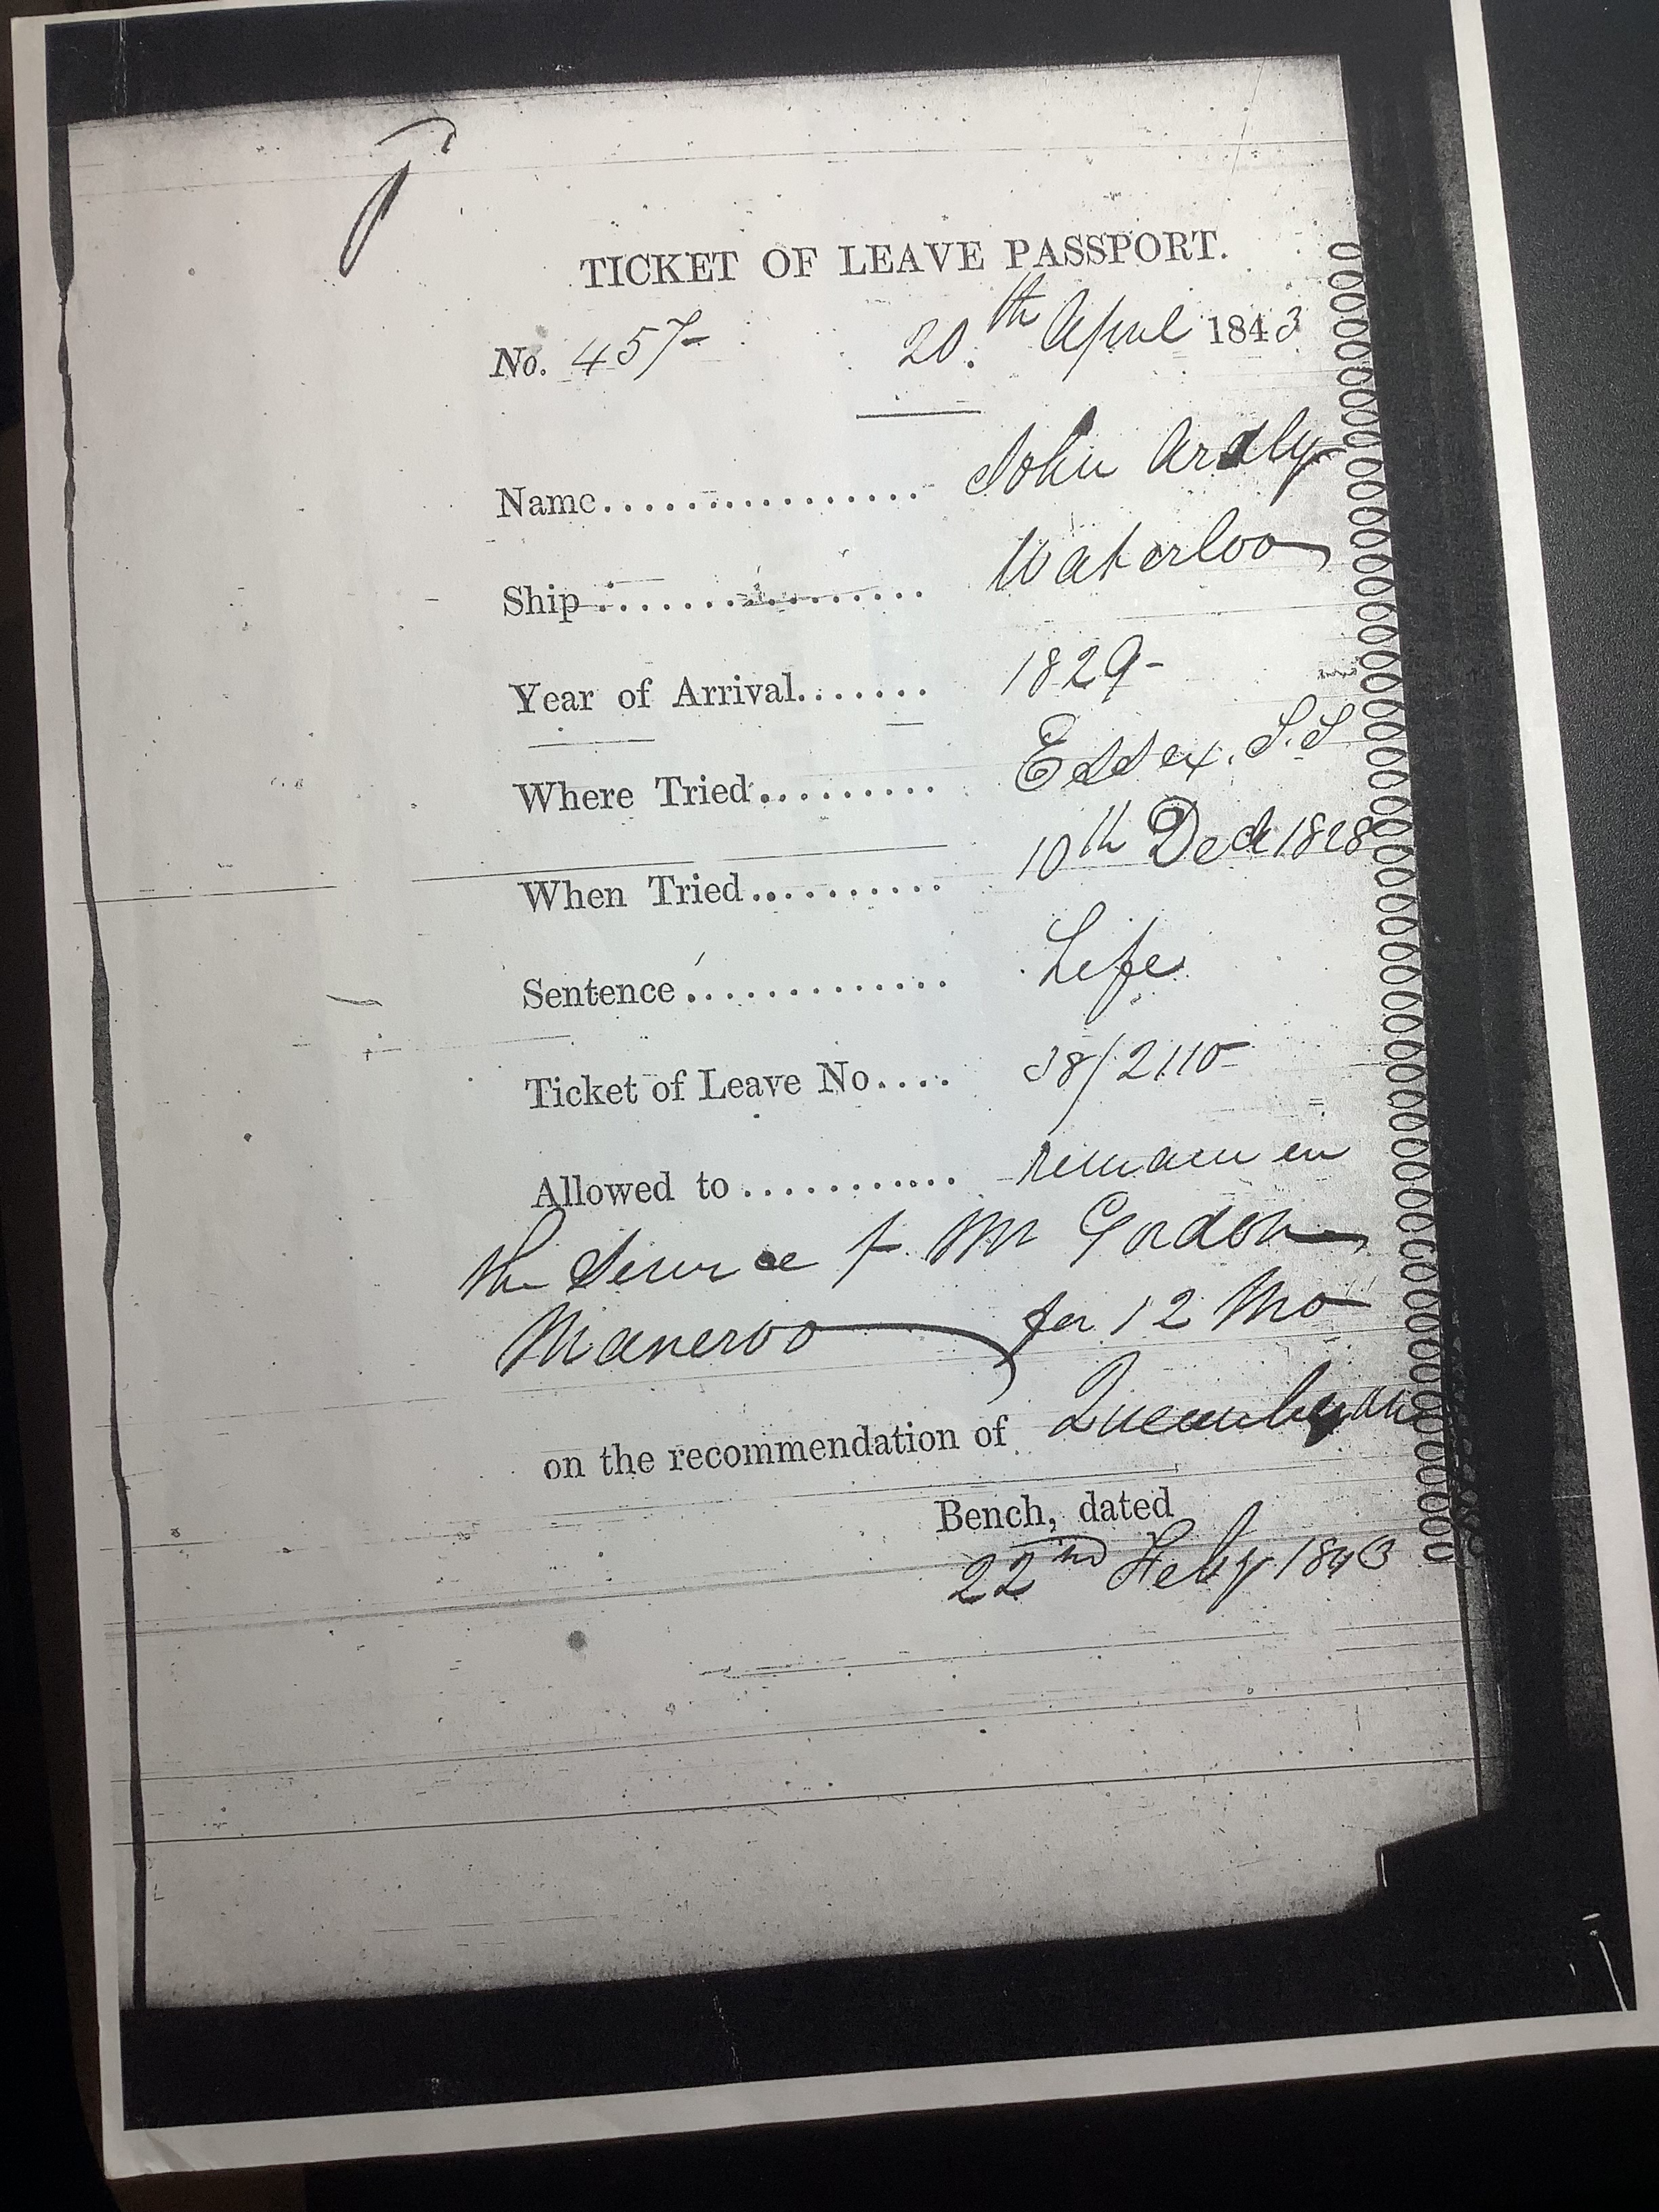 TICKET OF LEAVE PASSPORT.
No. 457- 20.th April 1843
Name.................. John Ardly
Ship.................. Waterloo
Year of Arrival....... 1829-
Where Tried.......... Essex. S.S
When Tried.......... 10th Decr 1828
Sentence............. Life
Ticket of Leave No.... 38/2110-
Allowed to........... remain in
the Service of Mr Gordon
Maneroo for 12 Mo
on the recommendation of Queanbeyan
Bench, dated
22nd Feby 1843